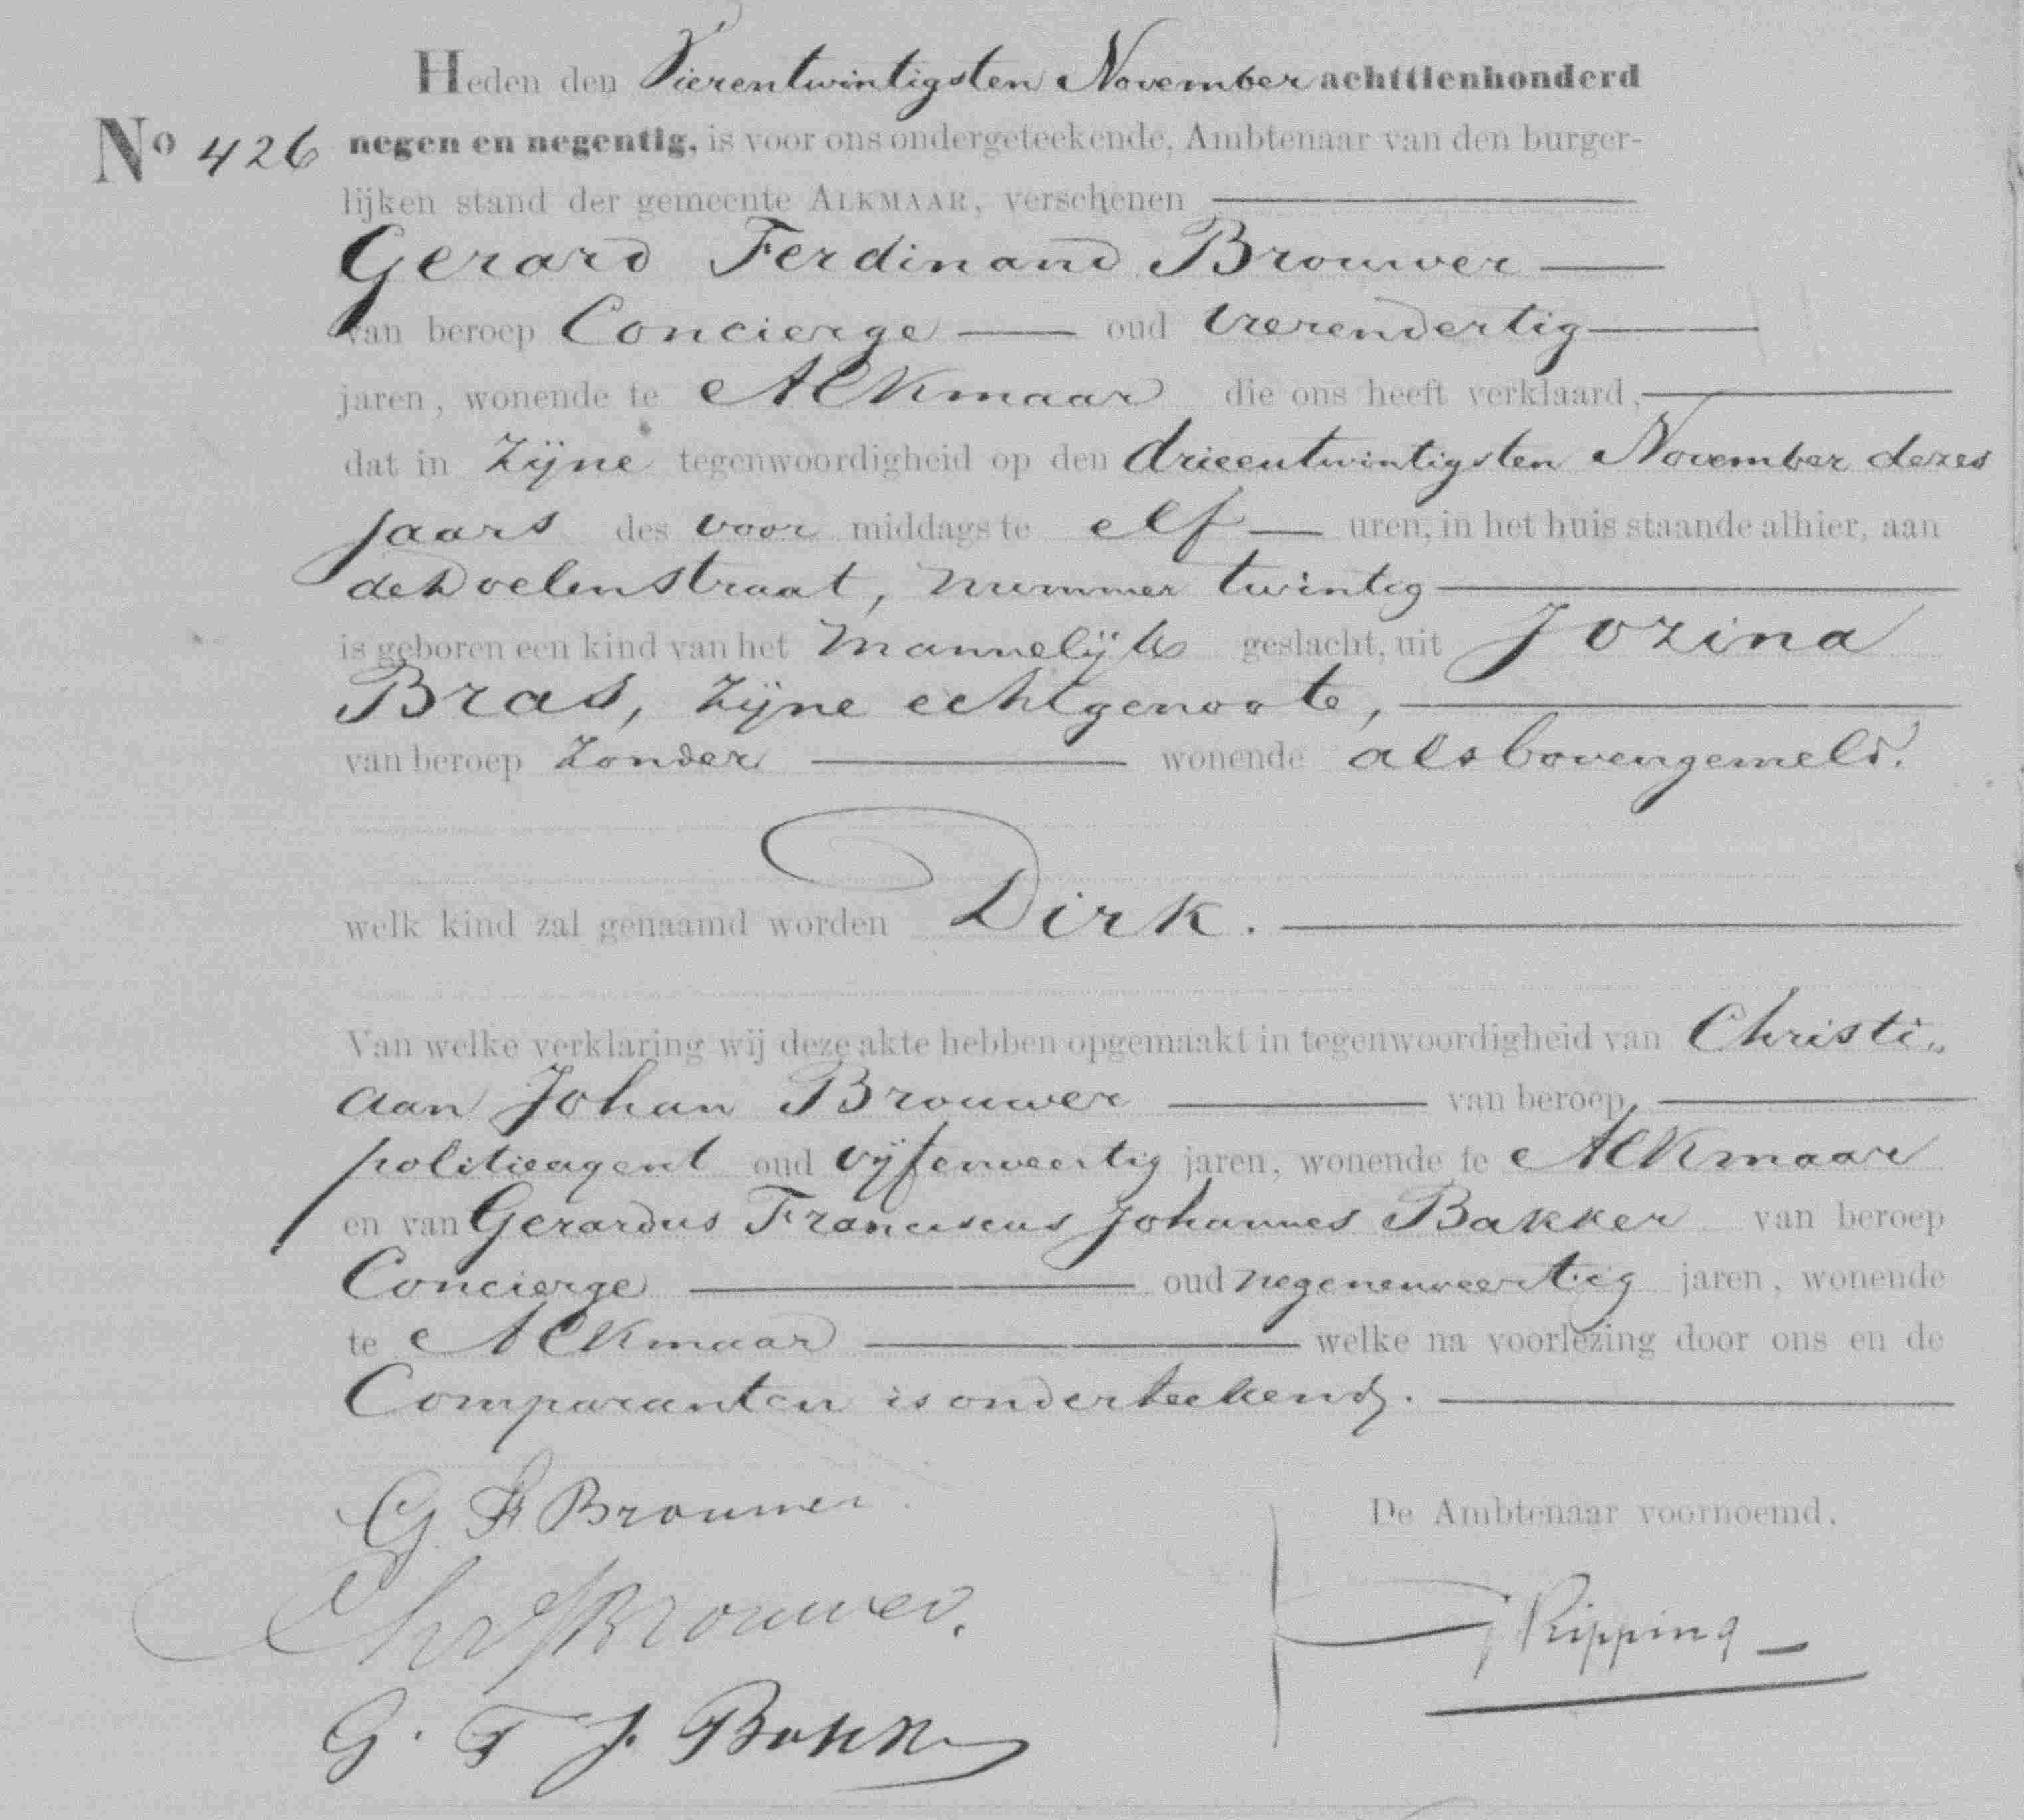 Heden den Vierentwintigsten November achttienhonderd
No 426 negen en negentig, is voor ons ondergeteekende, Ambtenaar van den burger-
lijken stand der gemeente ALKMAAR, verschenen
Gerard Ferdinand Brouwer
van beroep Concierge oud vierendertig
jaren, wonende te Alkmaar die ons heeft verklaard,
dat in zijne tegenwoordigheid op den drieentwintigsten November dezes
jaars des voor middags te elf uren, in het huis staande alhier, aan
den Doelenstraat, nummer twintig
is geboren een kind van het Mannelijk geslacht, uit Jozina
Bras, zijne echtgenoote,
van beroep zonder wonende als bovengemeld.
welk kind zal genaamd worden Dirk.
Van welke verklaring wij deze akte hebben opgemaakt in tegenwoordigheid van Christi„
aan Johan Brouwer van beroep
politieagent oud vijfenveertig jaren, wonende te Alkmaar
en van Gerardus Franciscus Johannes Bakker van beroep
Concierge oud negenenveertig jaren, wonende
te Alkmaar welke na voorlezing door ons en de
Comparanten is onderteekend.
G F Brouwer
De Ambtenaar voornoemd,
Chr J Brouwer.
Ripping
G. F J. Bakker